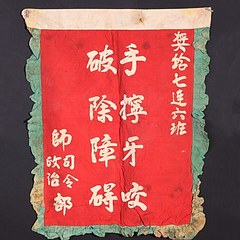 奖给七连六班
手擰牙咬
破除障碍
師司令部
政治部